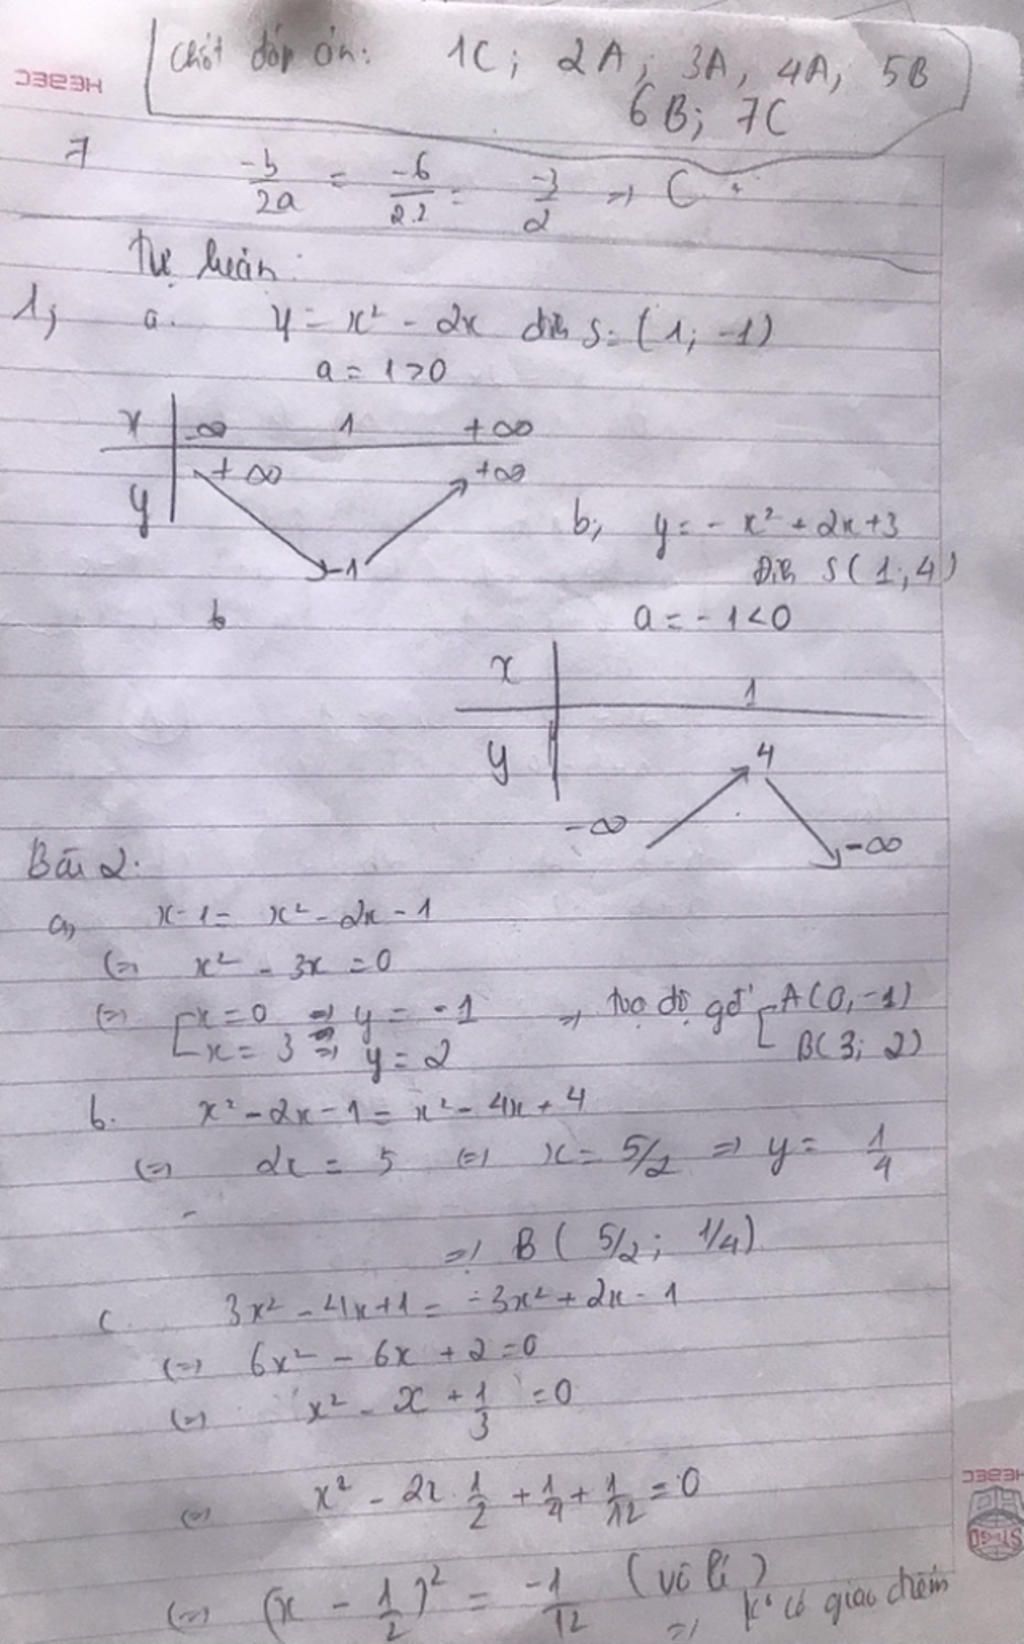 Chốt đáp án: 1C; 2A; 3A, 4A, 5B
6B; 7C
HESEC
7 -b/2a = -6/2.2 = -3/2 => C
Tự luận:
1; a. y = x² - 2x đỉnh S = (1; -1)
a = 1 > 0
x -∞ 1 +∞
y +∞ -1 +∞
b, y = -x² + 2x + 3
Đỉnh S(1; 4)
b a = -1 < 0
x 1
y 4
-∞ -∞
Bài 2.
a, x - 1 = x² - 2x - 1
(=) x² - 3x = 0
(=) [x = 0 => y = -1 => toạ độ gđ [A(0, -1)
x = 3 => y = 2 B(3; 2)
b. x² - 2x - 1 = x² - 4x + 4
(=) 2x = 5 (=) x = 5/2 => y = 1/4
=> B(5/2; 1/4)
c. 3x² - 4x + 1 = -3x² + 2x - 1
(=) 6x² - 6x + 2 = 0
(=) x² - x + 1/3 = 0
(=) x² - 2x . 1/2 + 1/4 + 1/12 = 0
(=) (x - 1/2)² = -1/12 (vô lí)
=> k° có giao điểm
HESEC